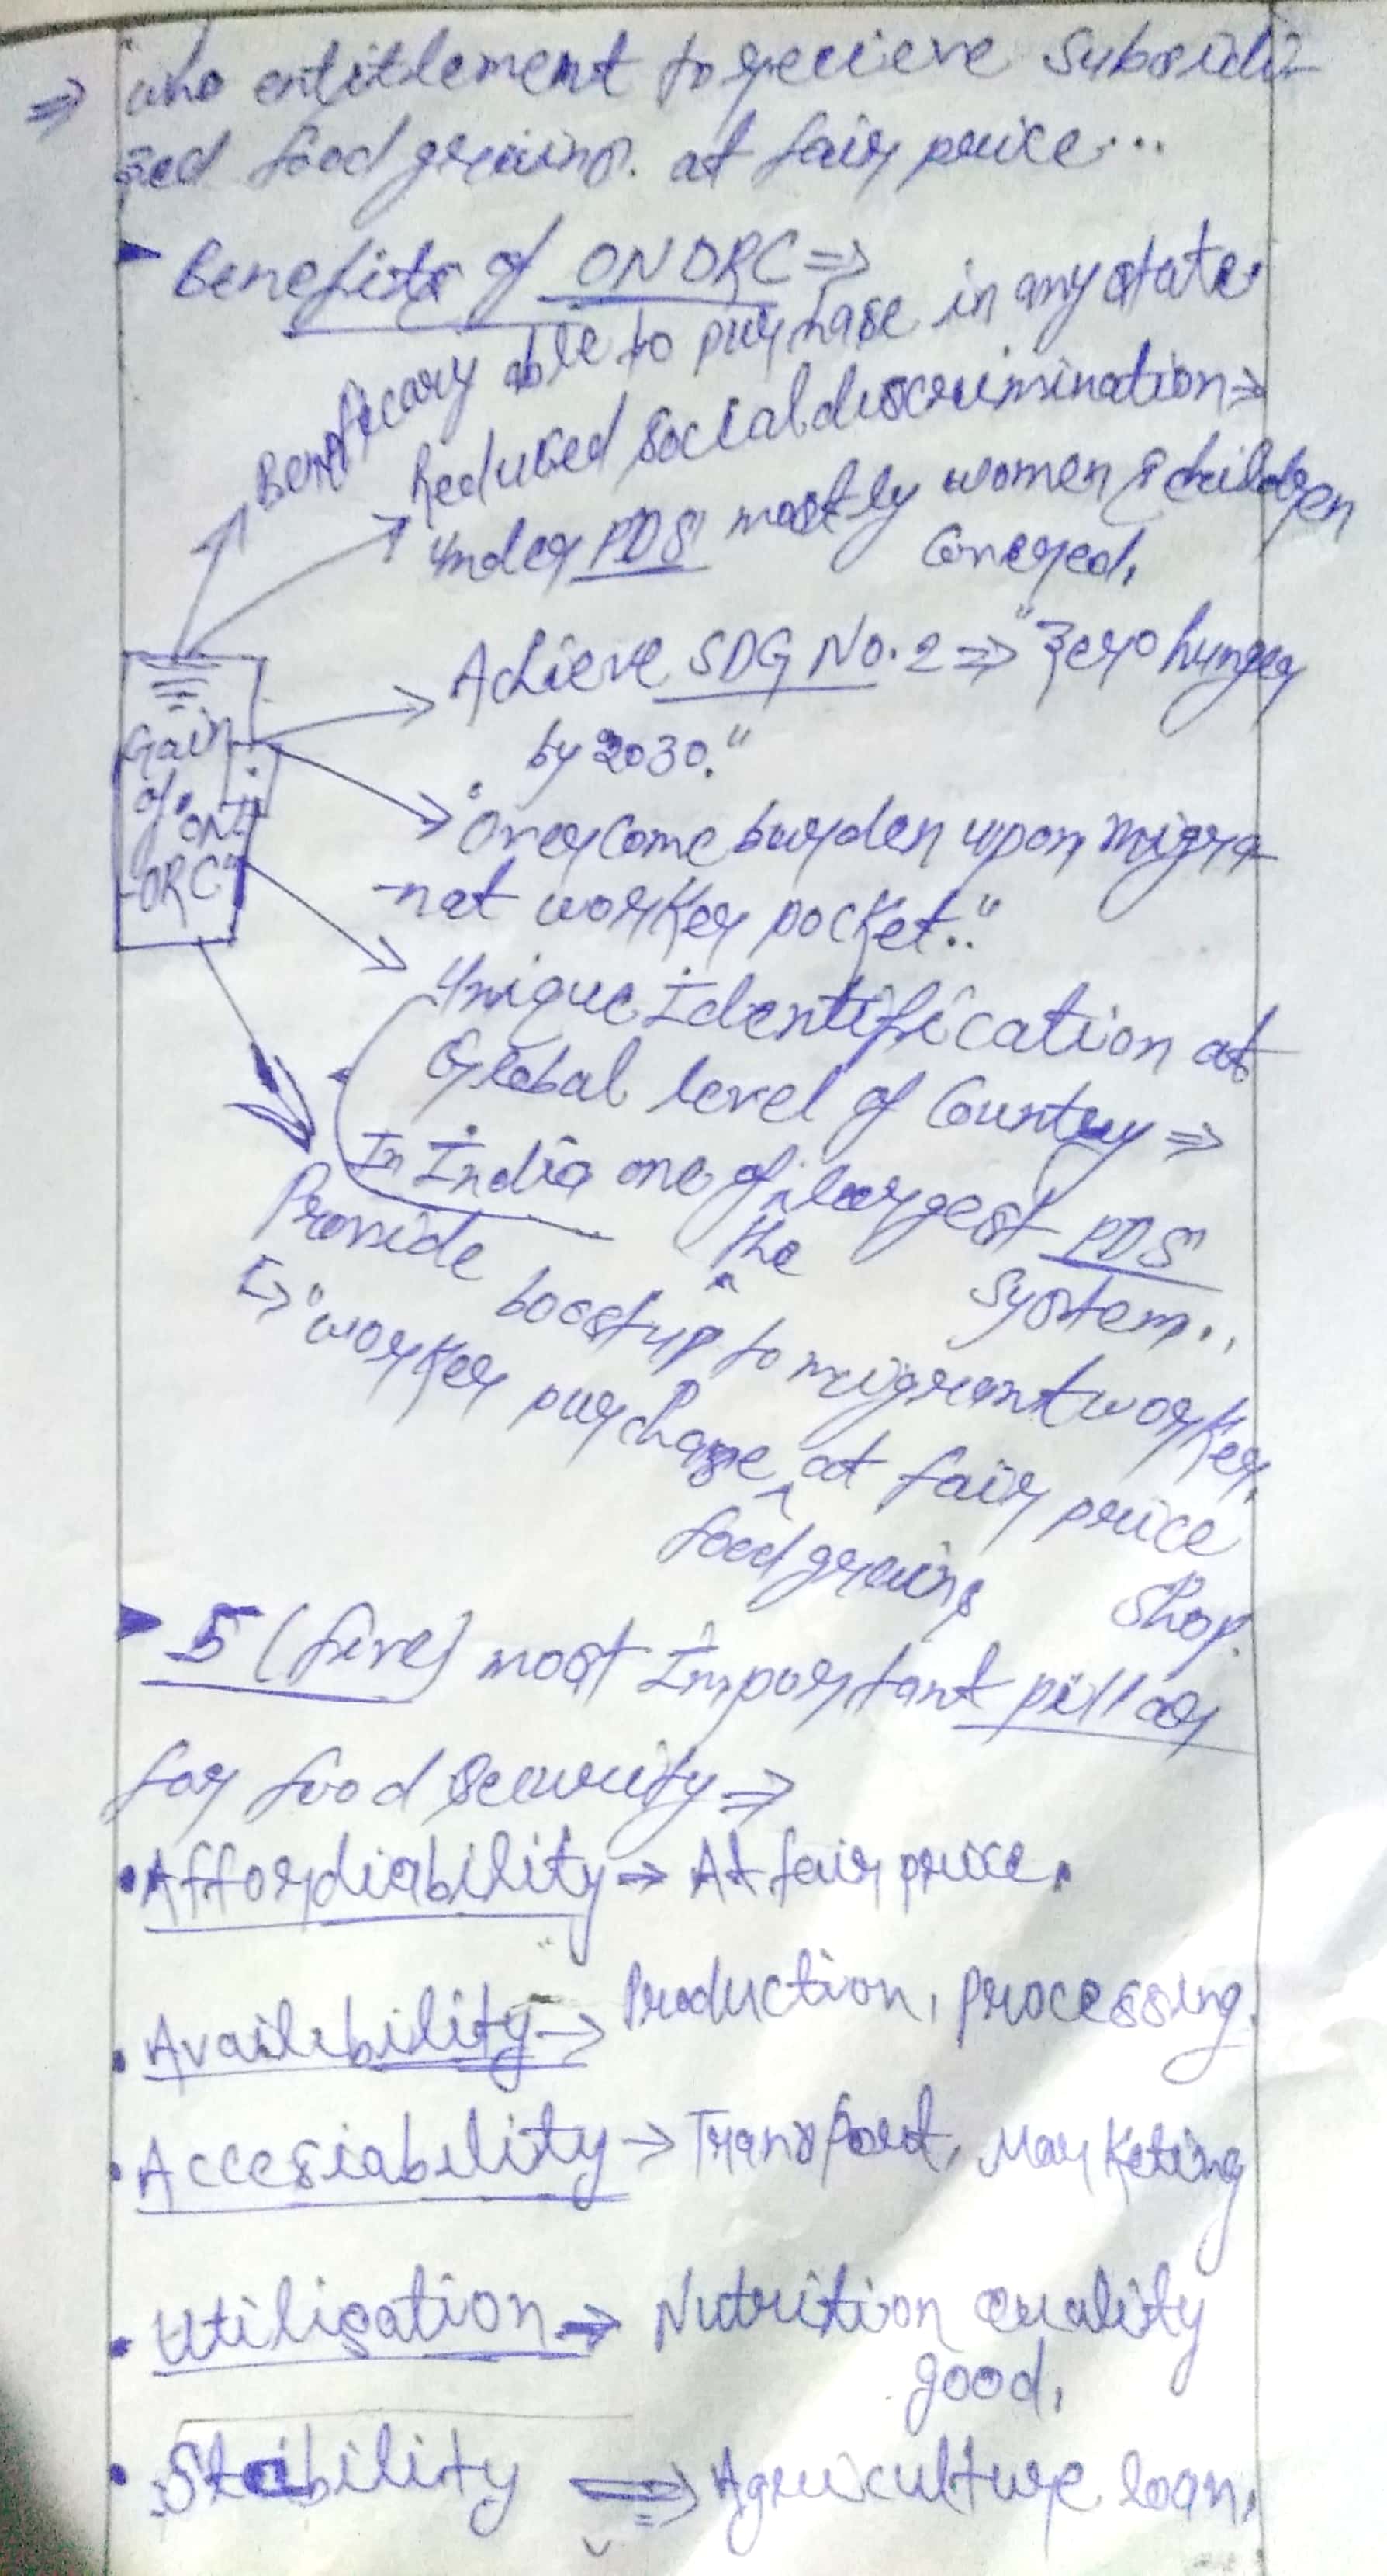 ⇒ who entitlement to recieve Subsidi-
zed food grains. at fair price...
Benefits of ONORC ⇒
Beneficary able to purchase in any state.
Reduced social discrimination ⇒
Under PDS mostly women & children
Covered.
Achieve SDG No. 2 ⇒ "Zero hunger
by 2030."
Gain
of "ON
-ORC"
"Overcome burden upon migra
-nat worker pocket.."
Unique Identification at
Global level of Country ⇒
In India one of the largest PDS
System..
Provide boostup to migrant worker.
↳ "worker purchase food grains at fair price
Shop.
5 (five) most Important pillar
for food security ⇒
• Affordiability → At fair price.
• Availibility → Production, processing.
• Accesiability → Transport, Marketing
• Utilisation ⇒ Nutrition quality
good.
• Stability ⇒ Agriculture loan.